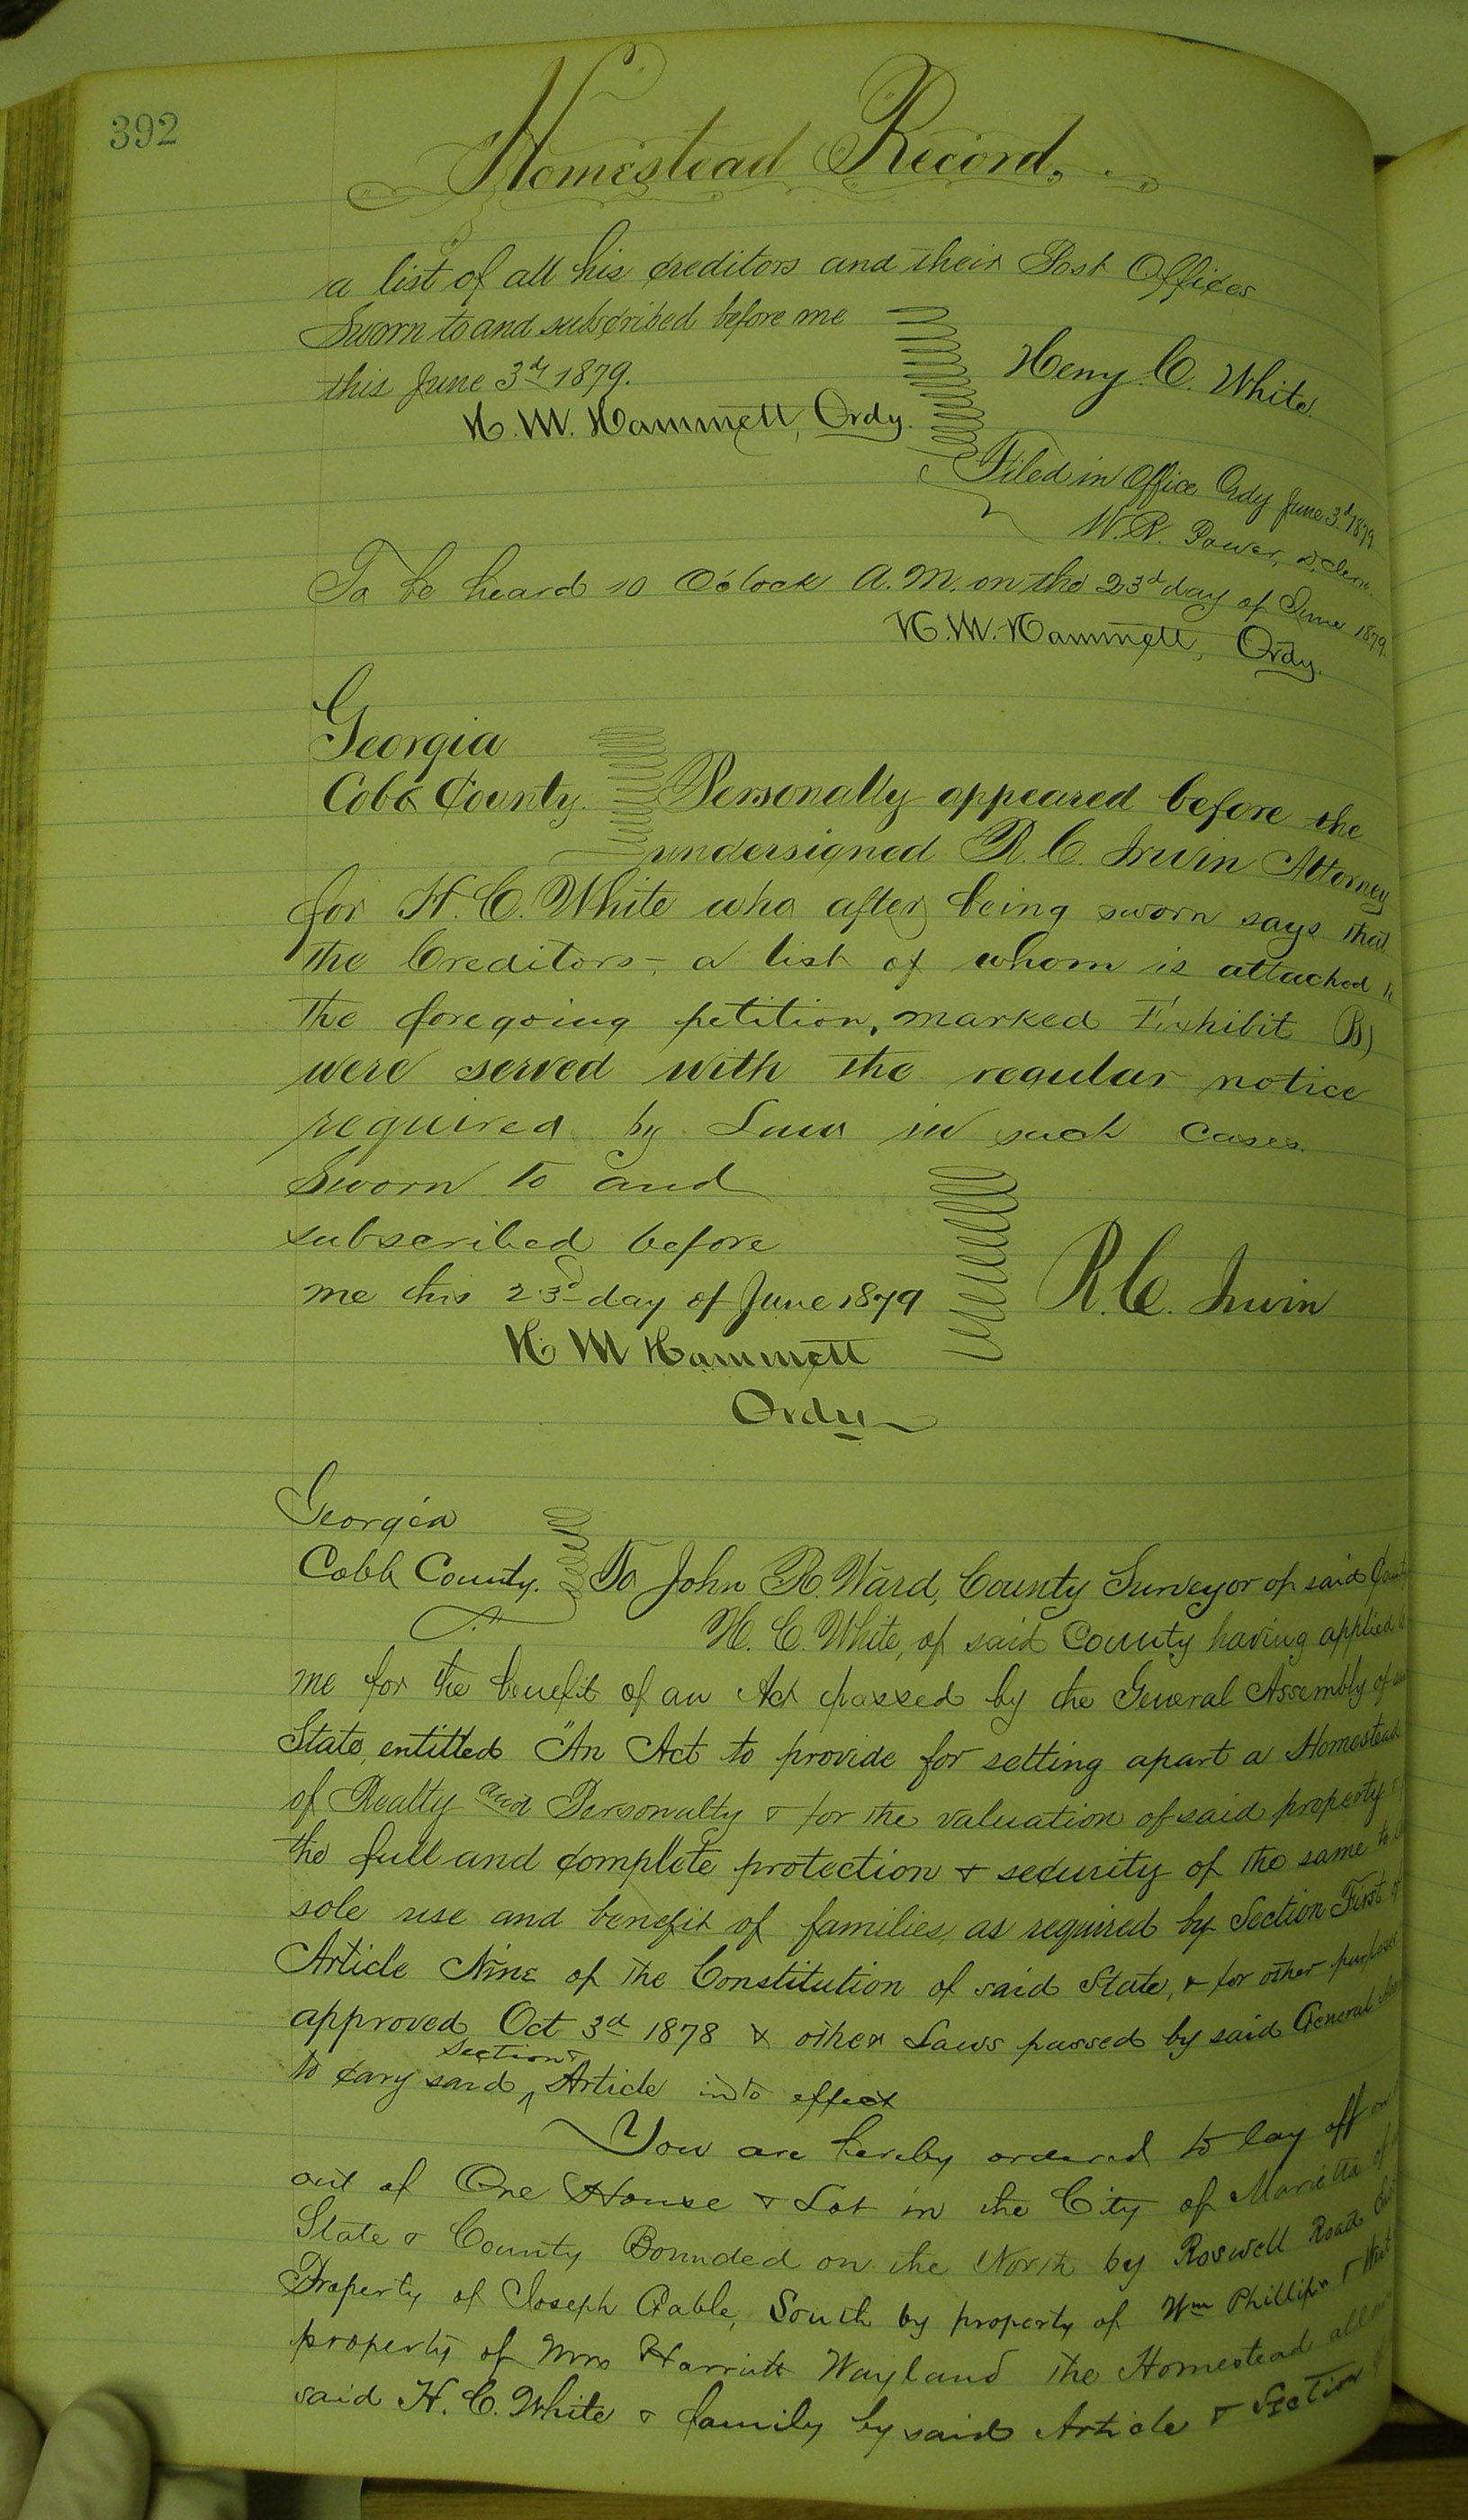 392
Homestead Record.
a list of all his creditors and their Post Offices
Sworn to and subscribed before me
this June 3d, 1879.
Heny. C. White.
H. M. Hammett, Ordy.
Filed in Office Ordy June 3d 1879
W. R. Power, D, Clerk.
To be heard 10 O'clock A.M. on the 23d day of June 1879.
H. M. Hammett, Ordy.
Georgia
Cobb County. Personally appeared before the
undersigned R. C. Irwin Attorney
for H. C. White who after being sworn says that
the Creditors - a list of whom is attached to
the foregoing petition, marked Exhibit B)
were served with the regular notice
required by Law in such cases.
Sworn to and
subscribed before
me this 23d day of June 1879
R. C. Irwin
H M Hammett
Ordy
Georgia
Cobb County. To John R. Ward, County Surveyor of said County
H. C. White, of said County having applied to
me for the benefit of an Act passed by the General Assembly of
State, entitled "An Act to provide for setting apart a Homestead
of Realty and Personalty & for the valuation of said property &
the full and complete protection & security of the same to
sole use and benefit of families, as required by Section First of
Article Nine of the Constitution of said State, & for other purposes
approved Oct 3d 1878 & other Laws passed by said General
to cary said Section & Article into effect
You are hereby ordered to lay off
out of One House & Lot in the City of Marietta of
State & County Bounded on the North by Roswell Road
Property of Joseph Gable, South by property of Wm Phillips & West
property of Mrs Harriett Wayland the Homestead
said H. C. White & family by said Article & Section